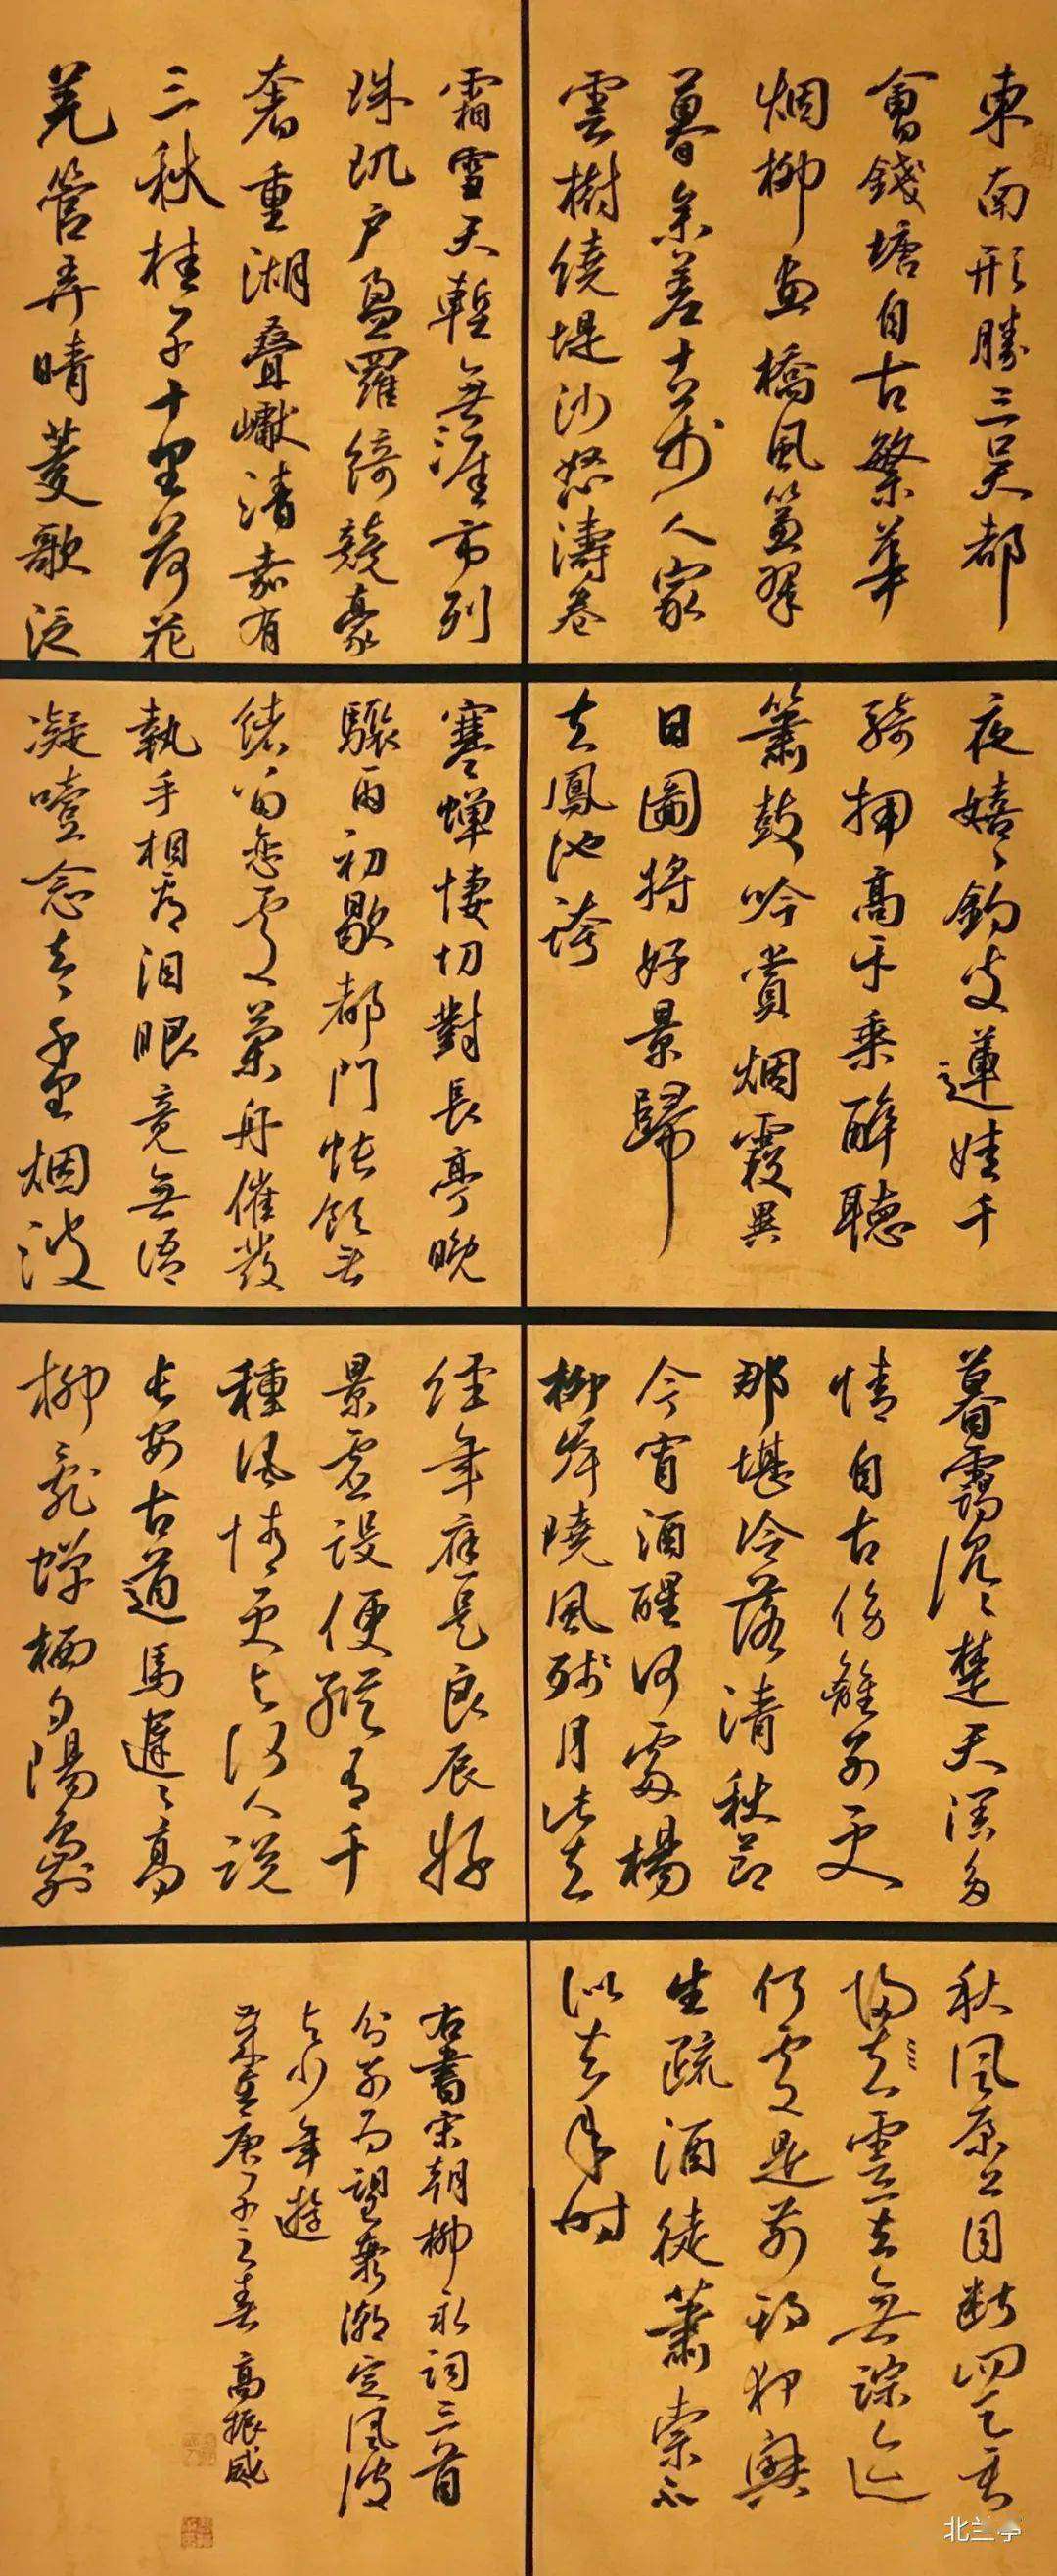 東南形勝三吴都
會錢塘自古繁華
烟柳画橋風簾翠
暮参差十万人家
雲樹繞堤沙怒濤卷
霜雪天塹無涯市列
珠玑户盈羅綺競豪
奢重湖叠巘清嘉有
三秋桂子十里荷花
羌管弄晴菱歌泛
夜嬉々釣叟蓮娃千
騎拥高牙乘醉聽
簫鼓吟賞烟霞異
日圖將好景歸
去鳳池誇
寒蝉悽切對長亭晚
驟雨初歇都門帐飲无
绪留恋處蘭舟催發
執手相看泪眼竟無语
凝噎念去々千里烟波
暮靄沉々楚天濶多
情自古傷離别更
那堪冷落清秋節
今宵酒醒何處楊
柳岸曉風残月此去
经年應是良辰好
景虚設便縱有千
種風情更与何人説
长安古道馬遲々高
柳亂蝉栖夕陽島外
秋風原上目断四天垂
歸去雲一去無踪迹
何處是前期狎興
生疏酒徒蕭索不
似去年时
右書宋朝柳永词三首
分别为望海潮定風波
与少年遊
岁在庚子之春 高振威
北兰亭